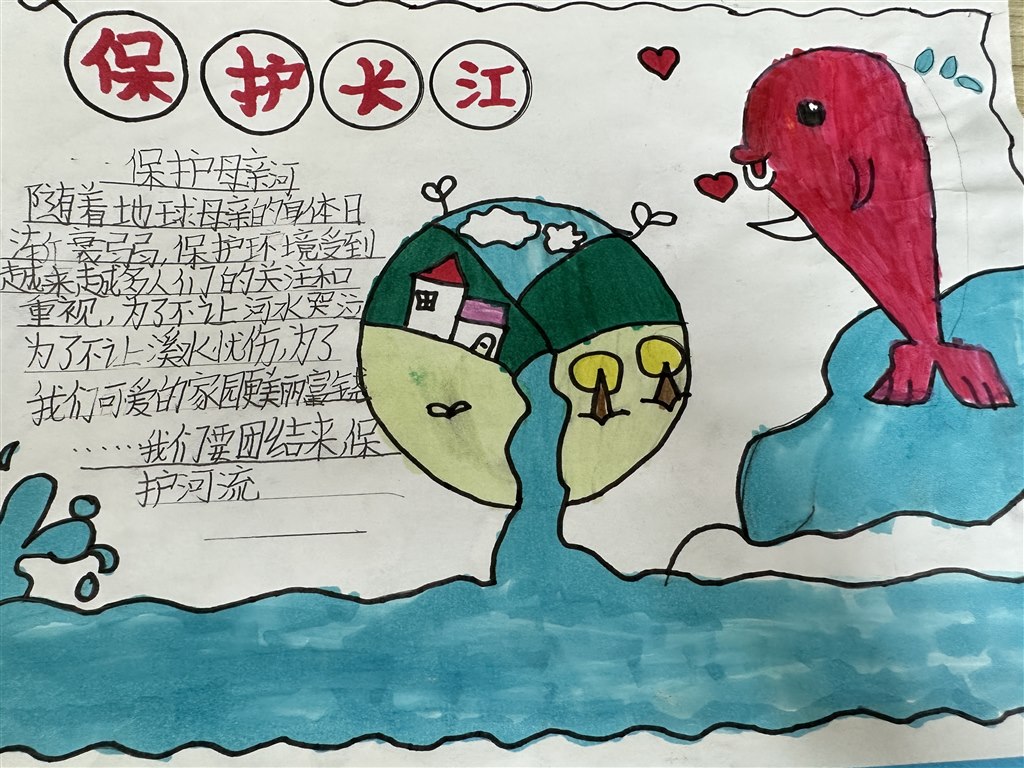 保护长江
保护母亲河
随着地球母亲的身体日
渐衰弱,保护环境受到
越来越多人们的关注和
重视,为了不让河水哭泣
为了不让溪水忧伤,为了
我们可爱的家园更美丽富
……我们要团结来,保
护河流